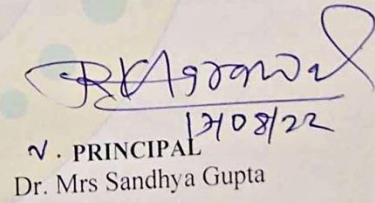 RKAgrawal
17/08/22
V. PRINCIPAL
Dr. Mrs Sandhya Gupta